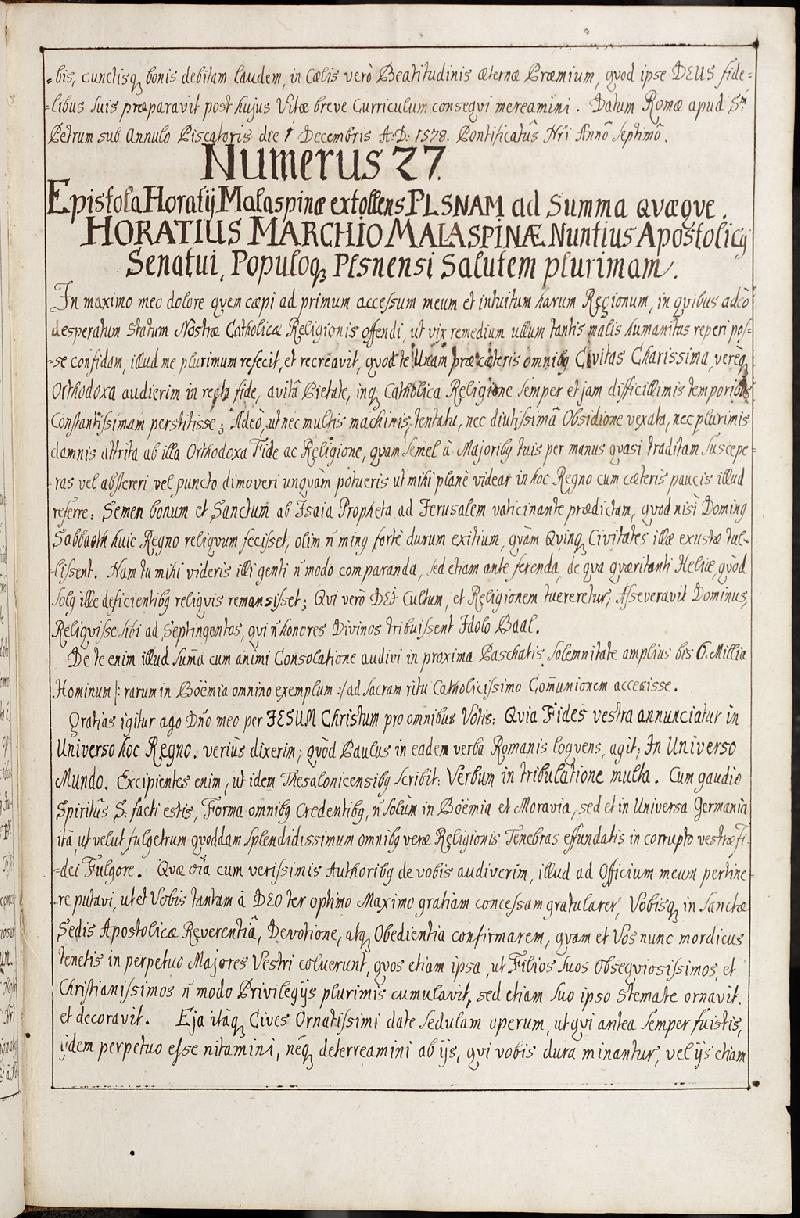 -bis, cunctisq; bonis debitam laudem, in Cælis verò Beatitudinis æternæ Præmium, quod ipse DEUS fide-
-libus suis præparavit post hujus Vitæ breve Curriculum consequi mereamini. Datum Romæ apud S.
Petrum sub Annulo Piscatoris die 1 Decembris A.D. 1578. Pontificatûs Nri Annô Septimô.
Numerus 27.
Epistola Horatij Malaspinæ extollens PLSNAM ad Summa quæque.
HORATIUS MARCHIO MALASPINÆ Nuntius Apostolicq
Senatui, Populoq; Plsnensi Salutem plurimam.
In maximo meo dolore quem cæpi ad primum accessum meum et intuitum harum Regionum, in quibus adeò
desperatum statum Nostræ Catholicæ Religionis offendi, ut vix remedium ullum tantis malis humanitus reperi pos-
-se confidam, illud me plurimum refecit, et recreavit, quod te Unam præ cæteris omnibq Civitas Charissima, vereq;
Orthodoxa audierim in recta fide, avitâ Pietate, inq; Catholica Religione semper etjam difficillimis temporibq
Constantissimam perstitisse; Adeò, ut nec multis machinis tentata, nec diutissimâ Obsidione vexata, nec plurimis
damnis attrita ab illa Orthodoxa Fide ac Religione, quam semel à Majoribq tuis per manus quasi traditam suscepe-
ras vel absterreri vel puncto dimoveri unquam potueris ut mihi planè videar in hoc Regno cum cæteris paucis illud
referre: Semen bonum et Sanctum ab Isaia Propheta ad Jerusalem vaticinante prædictam, quod nisi Dominq
Sabbaoth huic Regno reliquum fecisset, olim ñ minq fortè durum exitium, quàm Quinq; Civitates illæ exustæ tul-
-lissent. Nam tu mihi videris illi genti ñ modo comparanda, sed etiam ante ferenda, de qua quæritanti Heliæ, quòd
solq ille deficientibq reliquis remansisset; Qui verò DEI Cultum, et Religionem tueretur; Asseveravit Dominus,
Reliquisse sibi ad Septingentos, qui ñ honores Divinos tribuissent Idolo Baal.
De te enim illud suma cum animi Consolatione audivi in proxima Paschatis solemnitate amplius bis 6. Millia
Hominum /: rarum in Boëmia omnino exemplum :/ ad Sacram ritu Catholicissimo Com̃unionem accessisse.
Gratias igitur ago Dño meo per JESUM Christum pro omnibus Vobis: Quia Fides vestra annunciatur in
Universo hoc Regno. verius dixerim; quòd Paulus in eadem verba Romanis loquens, agit: In Universo
Mundo. Excipientes enim, ut idem Thesalonicensibq scribit: Verbum in tribulatione multa. Cum gaudio
Spiritûs S. facti estis, Forma omnibq Credentibq, ñ solùm in Boëmia et Moravia, sed et in Universa Germania
itâ, ut velut fulgetrum quoddam splendidissimum omnibq veræ Religionis Tenebras effundatis in corrupto vestræ Fi-
-dei Fulgore. Quæ oĩa cum verissimis Authoribq de vobis audiverim, illud ad Officium meum pertine-
-re putavi, ut et Vobis tantam à DEO ter optimo Maximo gratiam concessam gratularer, Vobisq; in Sanctæ
Sedis Apostolicæ Reverentiâ, Devotione, atq; Obedientia confirmarem, quam et Vos nunc mordicus
tenetis in perpetuo Majores Vestri coluerunt, quos etiam ipsa, ut Filios suos Obsequiosissimos, et
Christianissimos ñ modo Privilegijs plurimis cumulavit, sed etiam suo ipso stemate ornavit,
et decoravit. Eja itaq; Cives Ornatissimi date sedulam operum, ut qui antea semper fuistis,
ijdem perpetuo esse nitamini, neq; deterreamini ab ijs, qui vobis dura minantur, vel ijs etiam